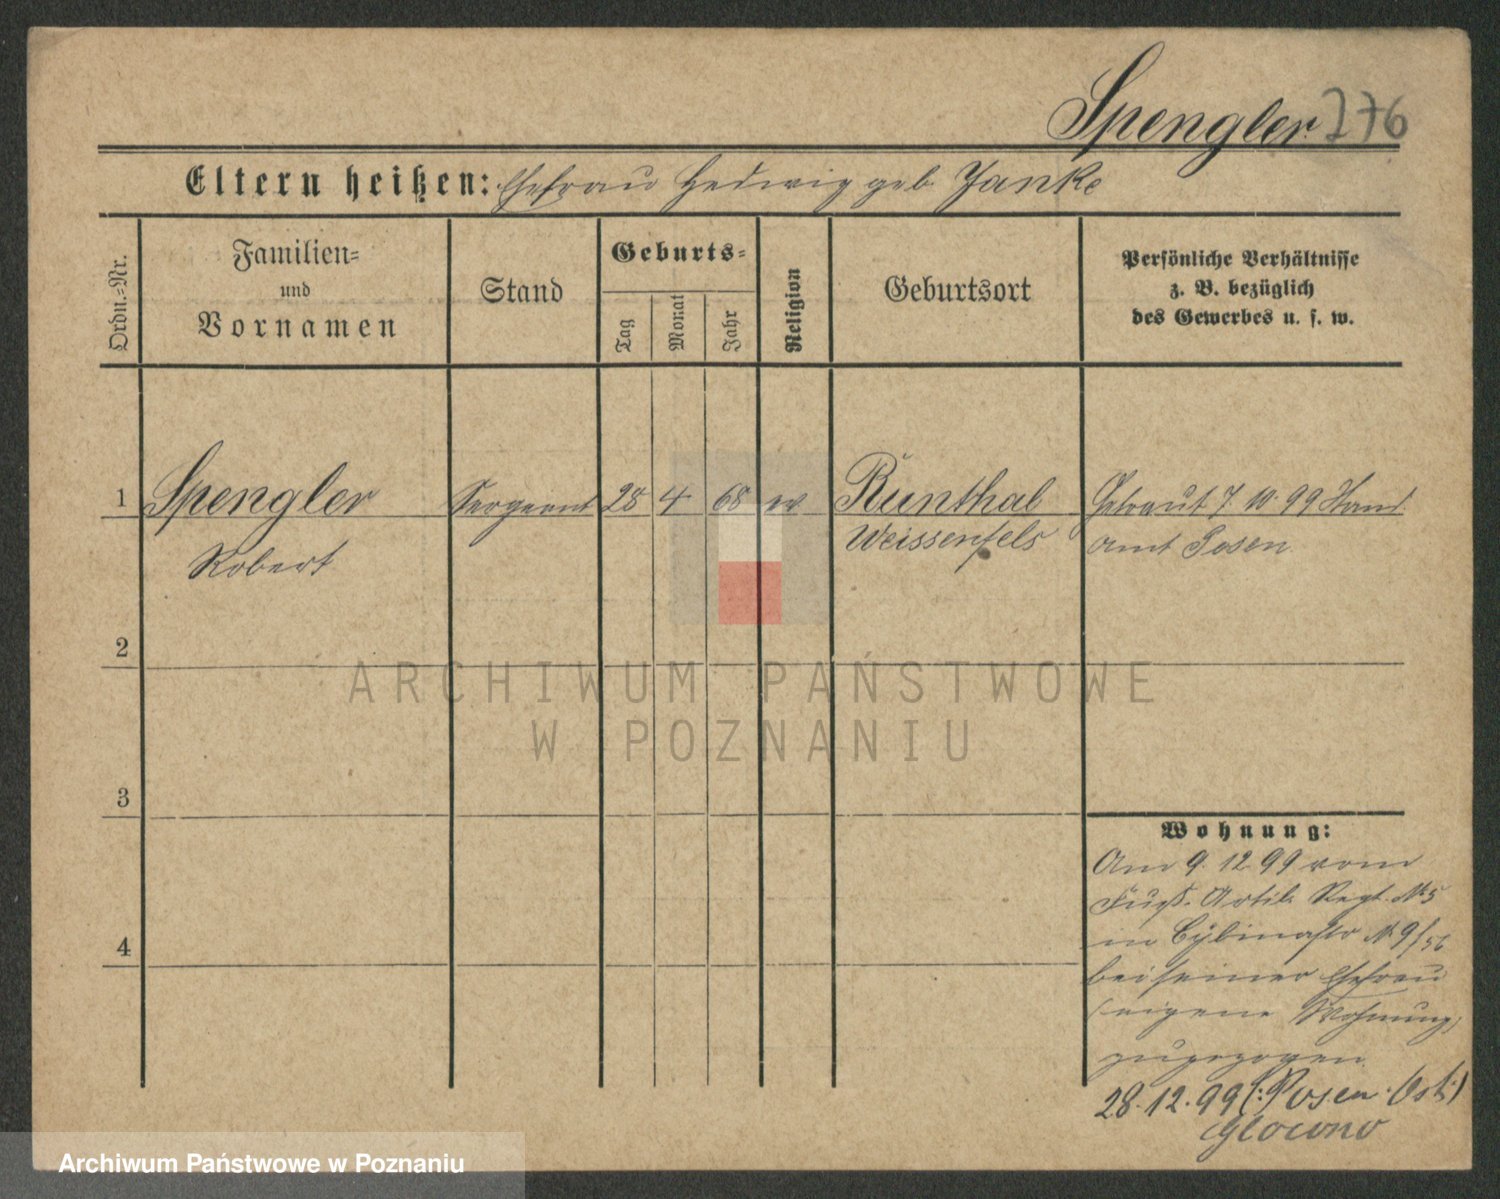 Spengler 276
Eltern heißen: Ehefrau Hedwig geb. Janke
Ordn.-Nr.
Familien-
und
Vornamen
Stand
Geburts-
Tag
Monat
Jahr
Religion
Geburtsort
Persönliche Verhältnisse
z. B. bezüglich
des Gewerbes u. s. w.
1 Spengler Sergeant 28 4 68 ev Runthal Getraut 7. 10. 99 Stand.
Robert Weissenfels amt Posen
2
3
4
Wohnung:
Am 9. 12 99 vom
Fuß. Artil. Regt. № 5
in Cybinastr № 9/56
bei seiner Ehefrau
(eigene Wohnung)
zugezogen.
28.12.99 (: Posen Ost:)
Glowno
ARCHIWUM PAŃSTWOWE
W POZNANIU
Archiwum Państwowe w Poznaniu